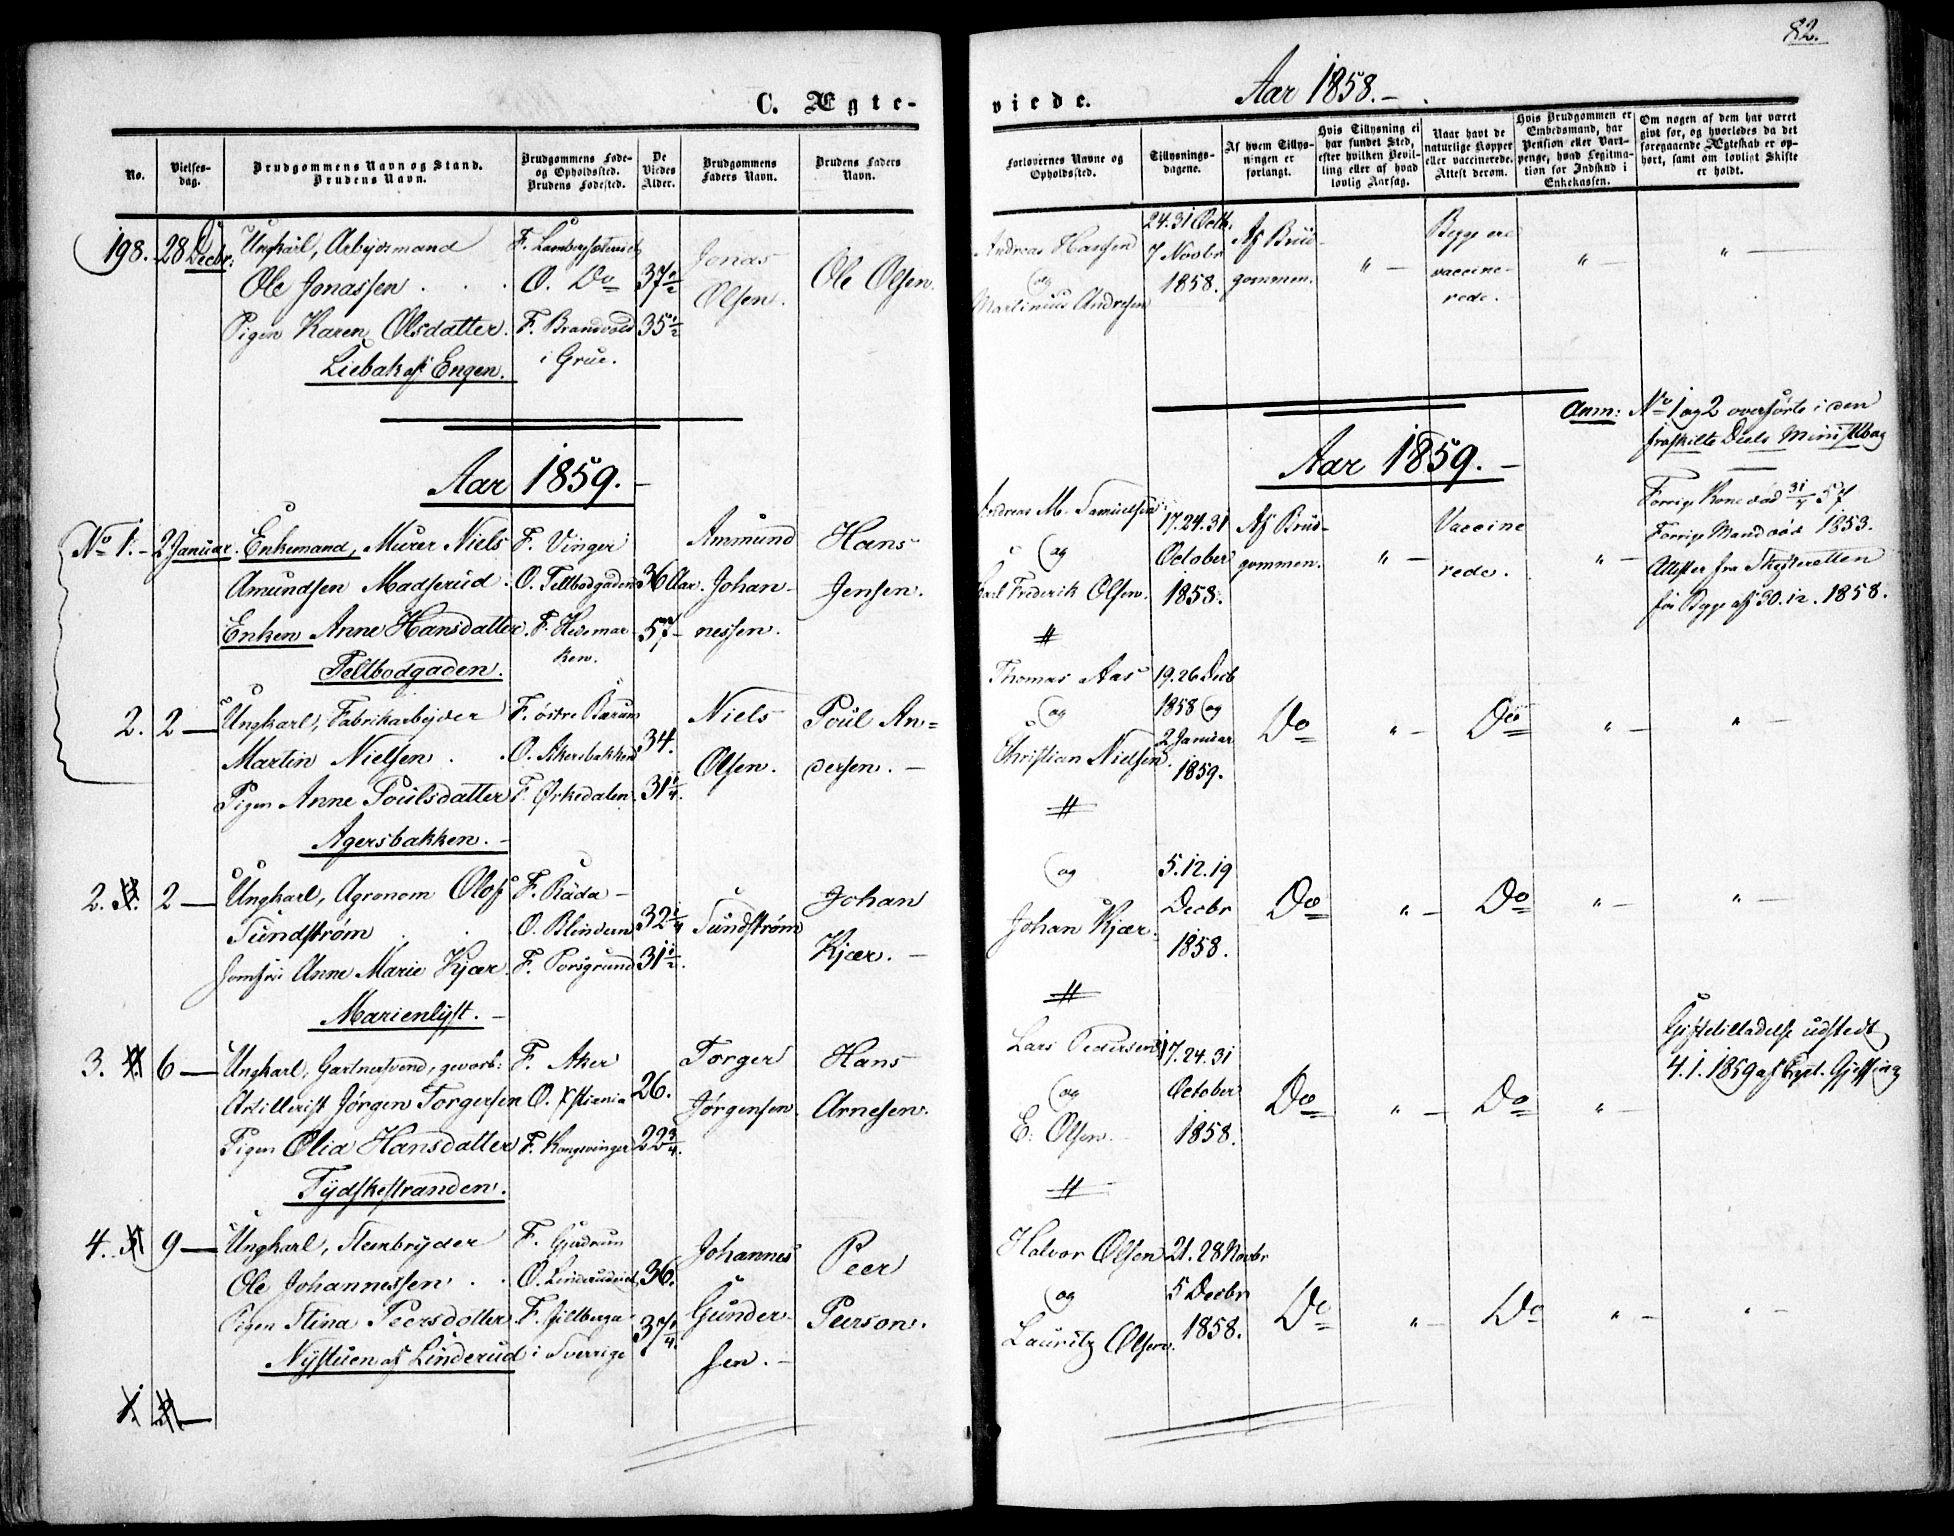 82.
C. Ægte-
viede.
Aar 1858.-
No.
Vielses-
dag.
Brudgommens Navn og Stand.
Brudens Navn.
Brudgommens Føde-
og Opholdssted.
Brudens Fødested.
De
Viedes
Alder.
Brudgommens
Faders Navn.
Brudens Faders
Navn.
Forlovernes Navne og
Opholdssted.
Tillysnings-
dagene.
Af hvem Tillys-
ningen er
forlangt.
Hvis Tillysning ei
har fundet Sted,
efter hvilken Bevil-
ling eller af hvad
lovlig Aarsag.
Naar havt de
naturlige Kopper
eller vaccinerede.
Attest derom.
Hvis Brudgommen er
Embedsmand, har
Pension eller Vart-
penge, hvad Legitima-
tion for Indskud i
Enkekassen.
Om nogen af dem har været
givt før, og hvorledes da det
foregaaende Ægteskab er op-
hørt, samt om lovligt Skifte
er holdt.
198. 28 Decbr:
Ungkarl, Arbejdsmand
Ole Jonassen
Pigen Karen Olsdatter
Liebak af Engen.
O. Do
F. Brandvold
i Grue.
37 1/2
35 1/2
Jonas
Olsen.
Ole Olsen.
Andreas Hansen
og
Martinius Andresen
24. 31 Octb.
7 Novbr
1858.
Af Brud-
gommen.
" -
Begge ere
vaccine-
rede.
" -
" -
Anm: No 1 og 2 overførte i den
fraskilte Deels Minist.bog
Aar 1859.-
Aar 1859.-
No 1. - 2 Januar.
Enkemand, Murer Niels
Amundsen Madserud
Enken Anne Hansdatter
Feltbodgaden.
F. Vinger
O. Feltbodgaden
F. Hedemar-
ken.
36 Aar.
57 -
Ammund
Johan-
nessen.
Hans
Jensen.
Andreas M. Samuelsen
og
Carl Frederik Olsen.
#
17. 24. 31
October
1858.
Af Brud-
gommen.
" -
Vaccine
rede.
" -
Forrige Kone død 57
Forrige Mand død 1853.
Attester fra Skifteretten
for Begge af 30. 12. 1858.
2. 2 -
Ungkarl, Fabrikarbejder
Martin Nielsen
Pigen Anne Poulsdatter
Agersbakken. -
F. østre Bærum
O. Akersbakken
F. Ørkedalen
34.
31 1/4.
Niels
Olsen.
Poul An-
dersen. -
Thomas Aas
og
Christian Nielsen.
#
19. 26 Decb
1858 og
2 Januar
1859.
Do
" -
Do
" -
" -
2. 2 -
Ungkarl, Agronom Olof
Sundstrøm
Jomfru Anne Marie Kjær
Marienlyst. -
F. Råda -
O. Blindern
F. Porsgrund
32 1/4
31 1/2.
Sundstrøm
Johan
Kjær. -
og
Johan Kjær
#
5. 12. 19
Decbr
1858.
Do
" -
Do
" -
" -
3. 6 -
Ungkarl, Gartnersvend, gevorb:
Artillerist Jørgen Torgersen
Pigen Olia Hansdatter
Tydskestranden.
F. Aker
O. Xstiania
F. Kongsvinger
26.
22 3/4.
Torger
Jørgensen.
Hans
Arnesen.
Lars Pedersen
og
E. Olsen.
#
17. 24. 31
October
1858.
Do
" -
Do
" -
Giftetilladelse udstedt
4. 1. 1859 af Capt. Gjessing
4. 9 -
Ungkarl, Stenbryder
Ole Johannessen
Pigen Stina Peersdotter
Nystuen af Linderud
O. Linderudeiet
F. Gillberga
i Sverrige
36.
37 1/4.
Johannes
Gunder-
sen. -
Peer
Peerson.
Halvor Olsen
og
Lauritz Olsen.
21. 28 Novbr
5 Decbr
1858.
Do
" -
Do
" -
" -